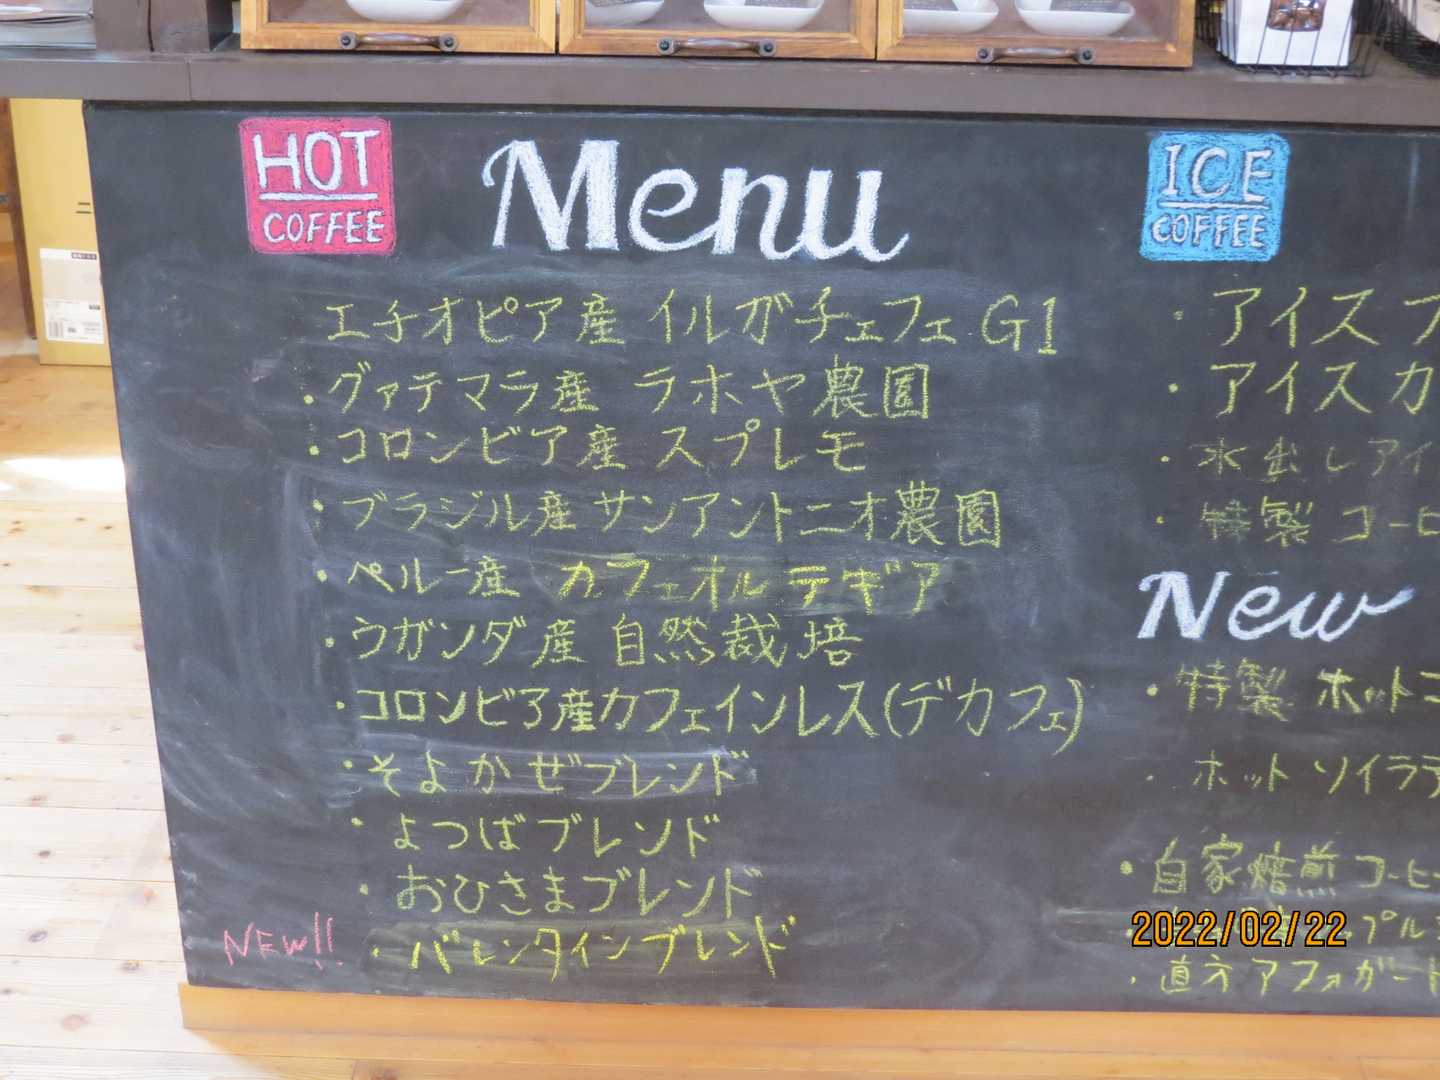 HOT
COFFEE
Menu
エチオピア産 イルガチェフェ G1
・グァテマラ産 ラホヤ農園
・コロンビア産 スプレモ
・ブラジル産 サンアントニオ農園
・ペルー産 カフェオルテギア
・ウガンダ産 自然栽培
・コロンビア産カフェインレス(デカフェ)
・そよかぜブレンド
・よつばブレンド
・おひさまブレンド
NEW!! ・バレンタインブレンド
ICE
COFFEE
・アイス
・アイス カ
・水出しアイ
・特製 コーヒ
New
・特製 ホット
・ホット ソイラテ
・自家焙煎 コーヒー
プル
・直方アフォガート
2022/02/22